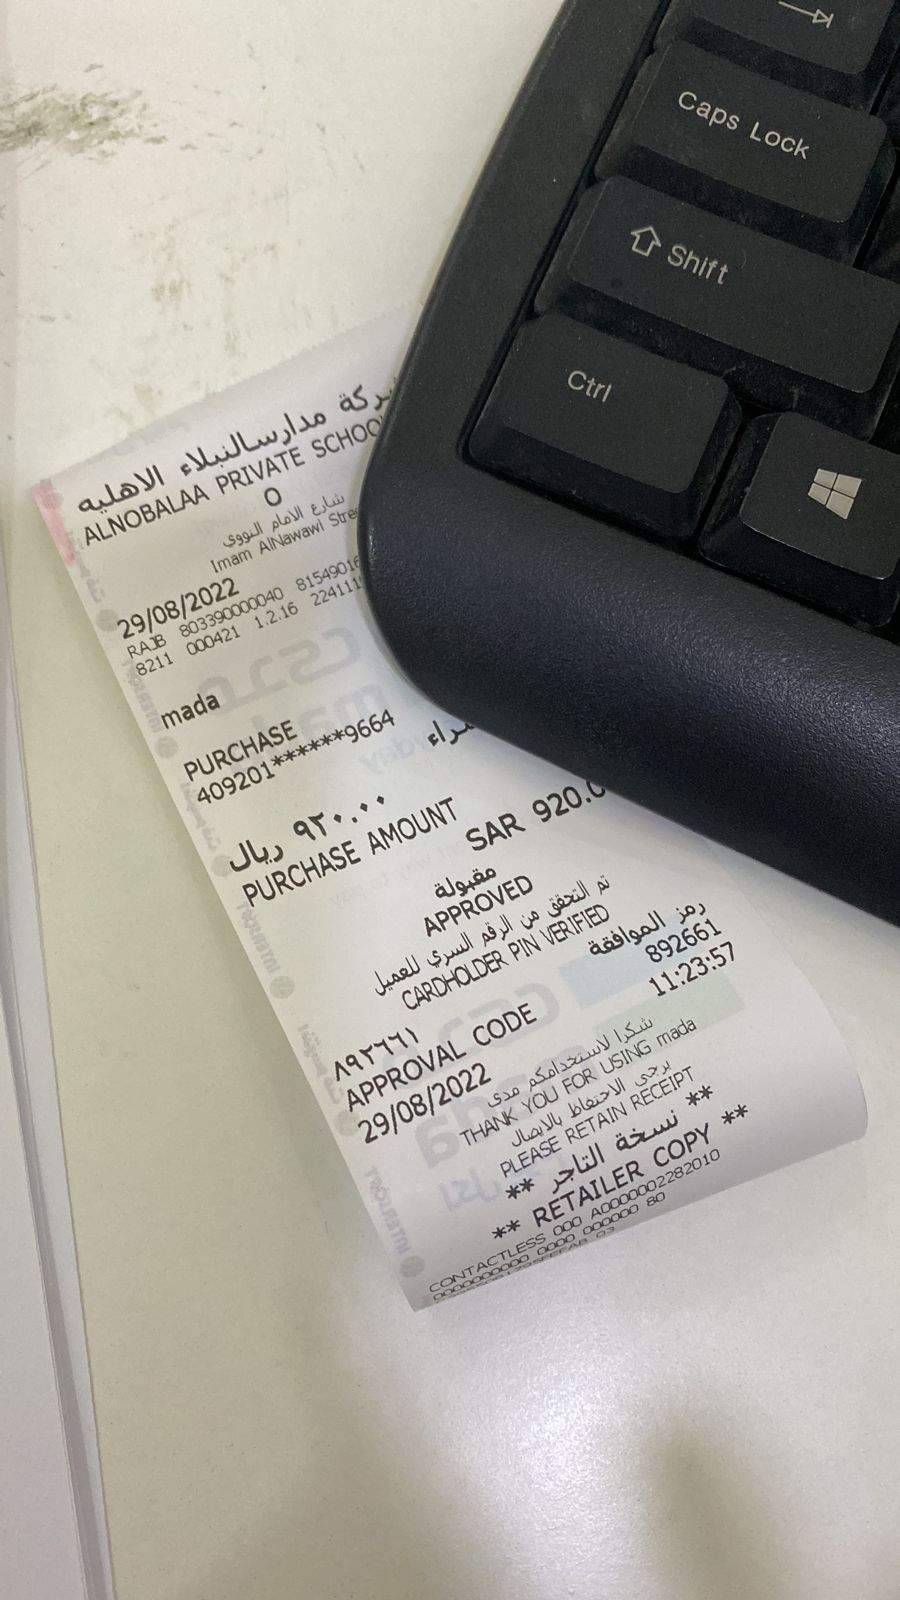 Caps Lock
Shift
Ctrl
مدارسالنبلاء الاهليه
ALNOBALAA PRIVATE
O
شارع الامام النووي
Imam AlNawawi
29/08/2022
RAJB 803390000040
8211 000421 1.2.16
mada
PURCHASE
409201******9664
٩٢٠.٠٠ ريال
PURCHASE AMOUNT
SAR
مقبولة
APPROVED
تم التحقق من الرقم السري للعميل
CARDHOLDER PIN VERIFIED
رمز الموافقة
892661
٨٩٢٦٦١
APPROVAL CODE
11:23:57
29/08/2022
شكرا لاستخدامكم مدى
THANK YOU FOR USING mada
يرجى الاحتفاظ بالايصال
PLEASE RETAIN RECEIPT
** نسخة التاجر **
** RETAILER COPY **
CONTACTLESS 000 A0000002282010
0000000000 0000 000000 80